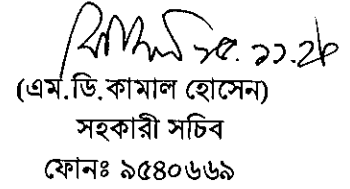 ২৫.১১.২৮
(এম.ডি.কামাল হোসেন)
সহকারী সচিব
ফোনঃ ৯৫৪০৬৬৯